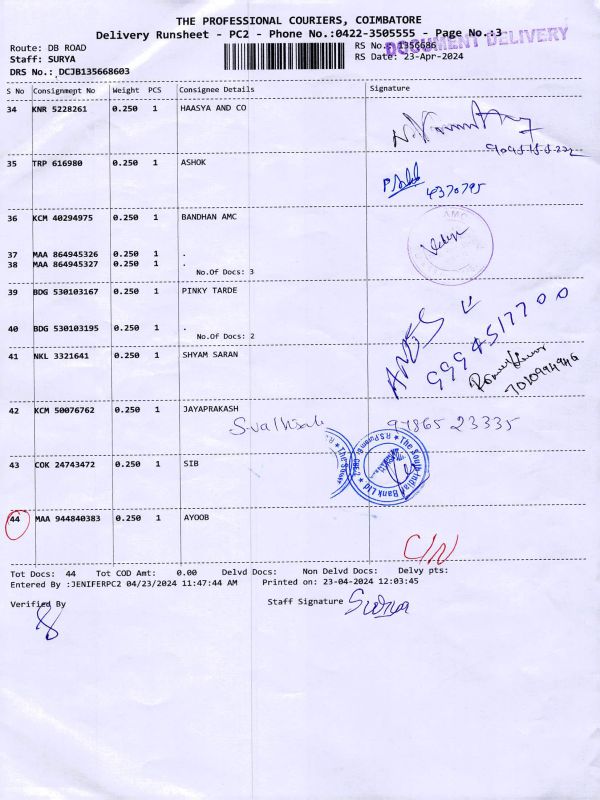 THE PROFESSIONAL COURIERS, COIMBATORE
Delivery Runsheet - PC2 - Phone No.:0422-3505555 - Page No.:3
DOCUMENT DELIVERY
Route: DB ROAD RS No.: 1356686
Staff: SURYA RS Date: 23-Apr-2024
DRS No.: DCJB135668603
S No Consignment No Weight PCS Consignee Details Signature
34 KNR 5228261 0.250 1 HAASYA AND CO
35 TRP 616980 0.250 1 ASHOK
4370795
36 KCM 40294975 0.250 1 BANDHAN AMC
AMC
37 MAA 864945326 0.250 1 .
38 MAA 864945327 0.250 1 .
No.Of Docs: 3
39 BDG 530103167 0.250 1 PINKY TARDE
40 BDG 530103195 0.250 1 .
No.Of Docs: 2
9994517700
41 NKL 3321641 0.250 1 SHYAM SARAN
42 KCM 50076762 0.250 1 JAYAPRAKASH
97865 23335
43 COK 24743472 0.250 1 SIB
The South Indian Bank Ltd ★ R.S.Puram
44 MAA 944840383 0.250 1 AYOOB
C/N
Tot Docs: 44 Tot COD Amt: 0.00 Delvd Docs: Non Delvd Docs: Delvy pts:
Entered By :JENIFERPC2 04/23/2024 11:47:44 AM Printed on: 23-04-2024 12:03:45
Verified By Staff Signature Surya